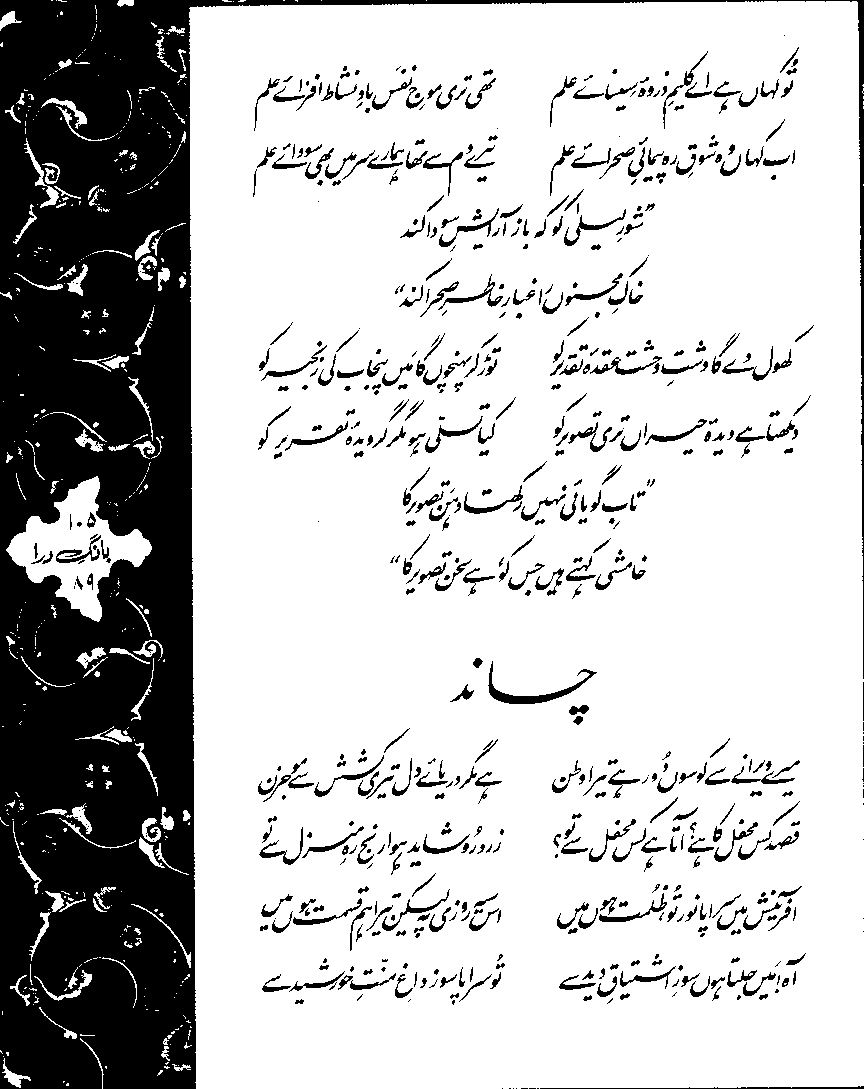 تُو کہاں ہے اے کلیمِ ذروۂ سینائے علم تھی تری موجِ نفَس بادِ نشاط افزائے علم
اب کہاں وہ شوقِ رہ پیمائیِ صحرائے علم تیرے دم سے تھا ہمارے سر میں بھی سودائے علم
”شورِ لیلیٰ کو کہ باز آرایشِ سودا کند
خاکِ مجنوں را غبارِ خاطرِ صحرا کند“
کھول دے گا دشتِ وحشت عقدۂ تقدیر کو توڑ کر پہنچوں گا مَیں پنجاب کی زنجیر کو
دیکھتا ہے دیدۂ حیراں تری تصویر کو کیا تسلّی ہو مگر گرویدۂ تقریر کو
”تابِ گویائی نہیں رکھتا دہَن تصویر کا
خامشی کہتے ہیں جس کو، ہے سخن تصویر کا“
چاند
میرے ویرانے سے کوسوں دُور ہے تیرا وطن ہے مگر دریائے دل تیری کشش سے موجزن
قصد کس محفل کا ہے؟ آتا ہے کس محفل سے تو؟ زرد رُو شاید ہوا رنجِ رہِ منزل سے تو
آفرنیش میں سراپا نور تُو، ظُلمت ہوں میں اس سیہ روزی پہ لیکن تیرا ہم قسمت ہوں میں
آہ! مَیں جلتا ہوں سوزِ اشتیاقِ دید سے تُو سراپا سوز داغِ منّتِ خورشید سے
۱۰۵
بانگِ درا
۸۹